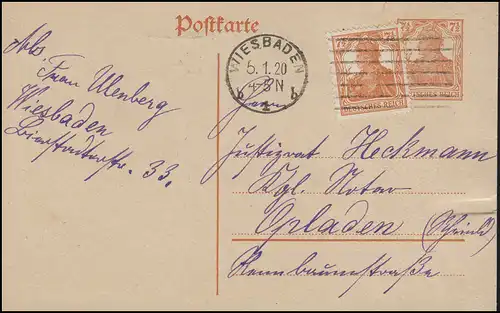 Postkarte
Abs.
Frau Ulenberg
Wiesbaden
Bierstadterstr. 33.
WIESBADEN
5.1.20
4-5 N
b 1 b
7½ 7½
DEUTSCHES REICH
7½ 7½
DEUTSCHES REICH
Herrn
Justizrat Heckmann
Kgl. Notar
Opladen (Rheinld)
Rennbaumstraße